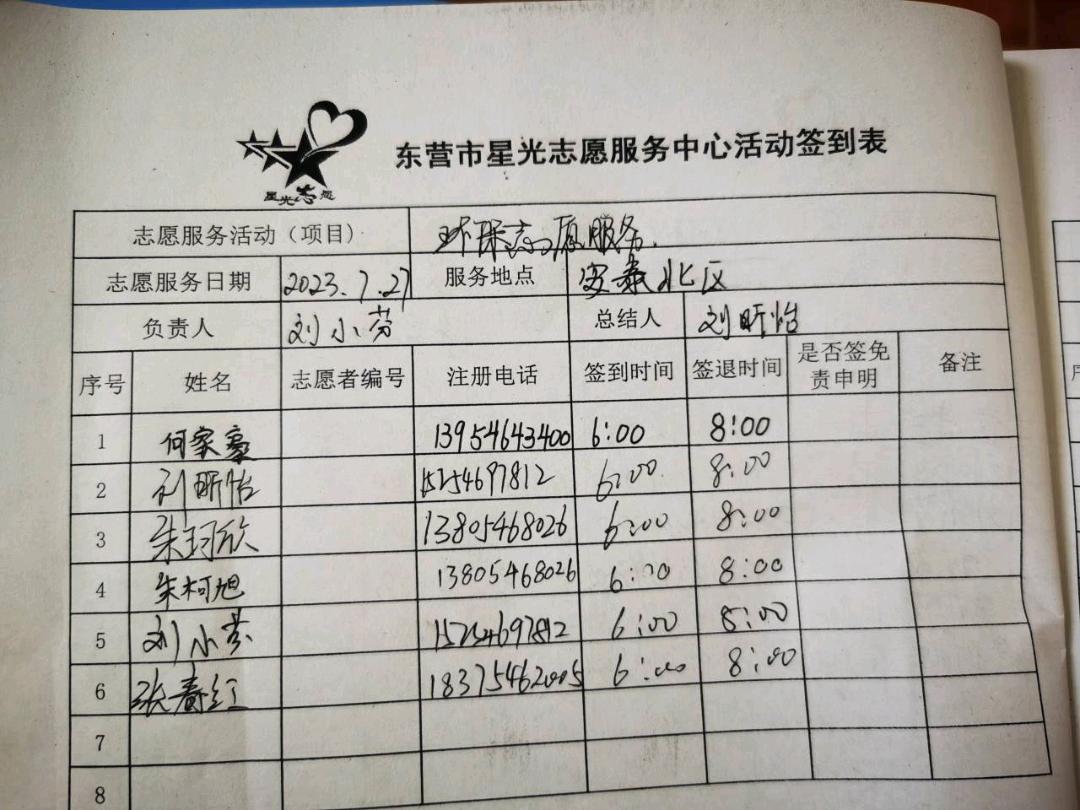 星光志愿
东营市星光志愿服务中心活动签到表
志愿服务活动（项目） 环保志愿服务.
志愿服务日期 2023.7.27 服务地点 安泰北区
负责人 刘小芬 总结人 刘昕怡
序号 姓名 志愿者编号 注册电话 签到时间 签退时间 是否签免责申明 备注
1 何家豪 13954643400 6:00 8:00
2 刘昕怡 15254697812 6:00 8:00
3 朱珂欣 13805468026 6:00 8:00
4 朱柯旭 13805468026 6:00 8:00
5 刘小芬 15254697812 6:00 8:00
6 张春红 18375462005 6:00 8:00
7
8